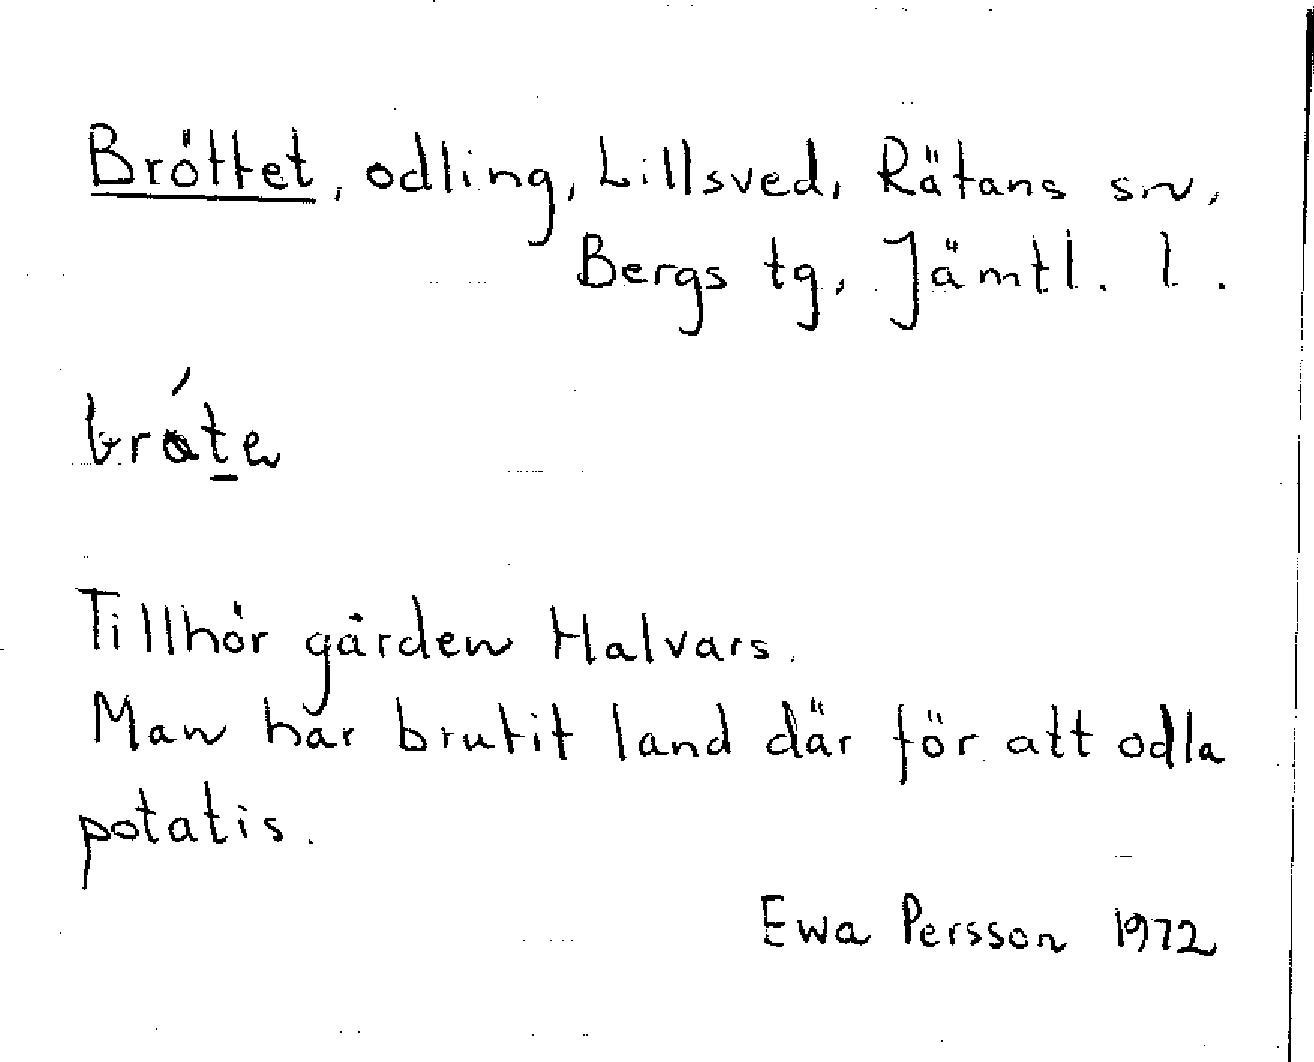 Bröttet, odling, Lillsved, Rätans sn,
Bergs tg, Jämtl. l.
Tillhör gården Halvars.
Man har brutit land där för att odla
potatis.
Ewa Persson 1972